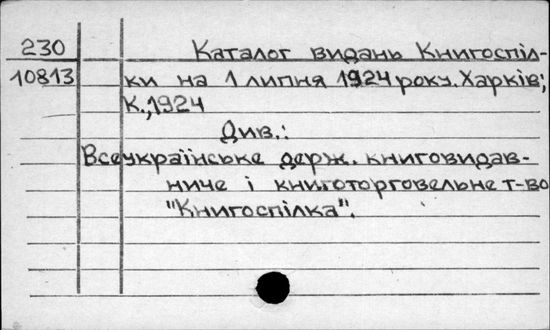 230 Каталог видань Книгоспіл-
10813 ки на 1 липня 1924 року. Харків;
К.,1924
Див.:
Всеукраїнське держ. книговидав-
ниче і книготорговельне т-во
"Книгоспілка".